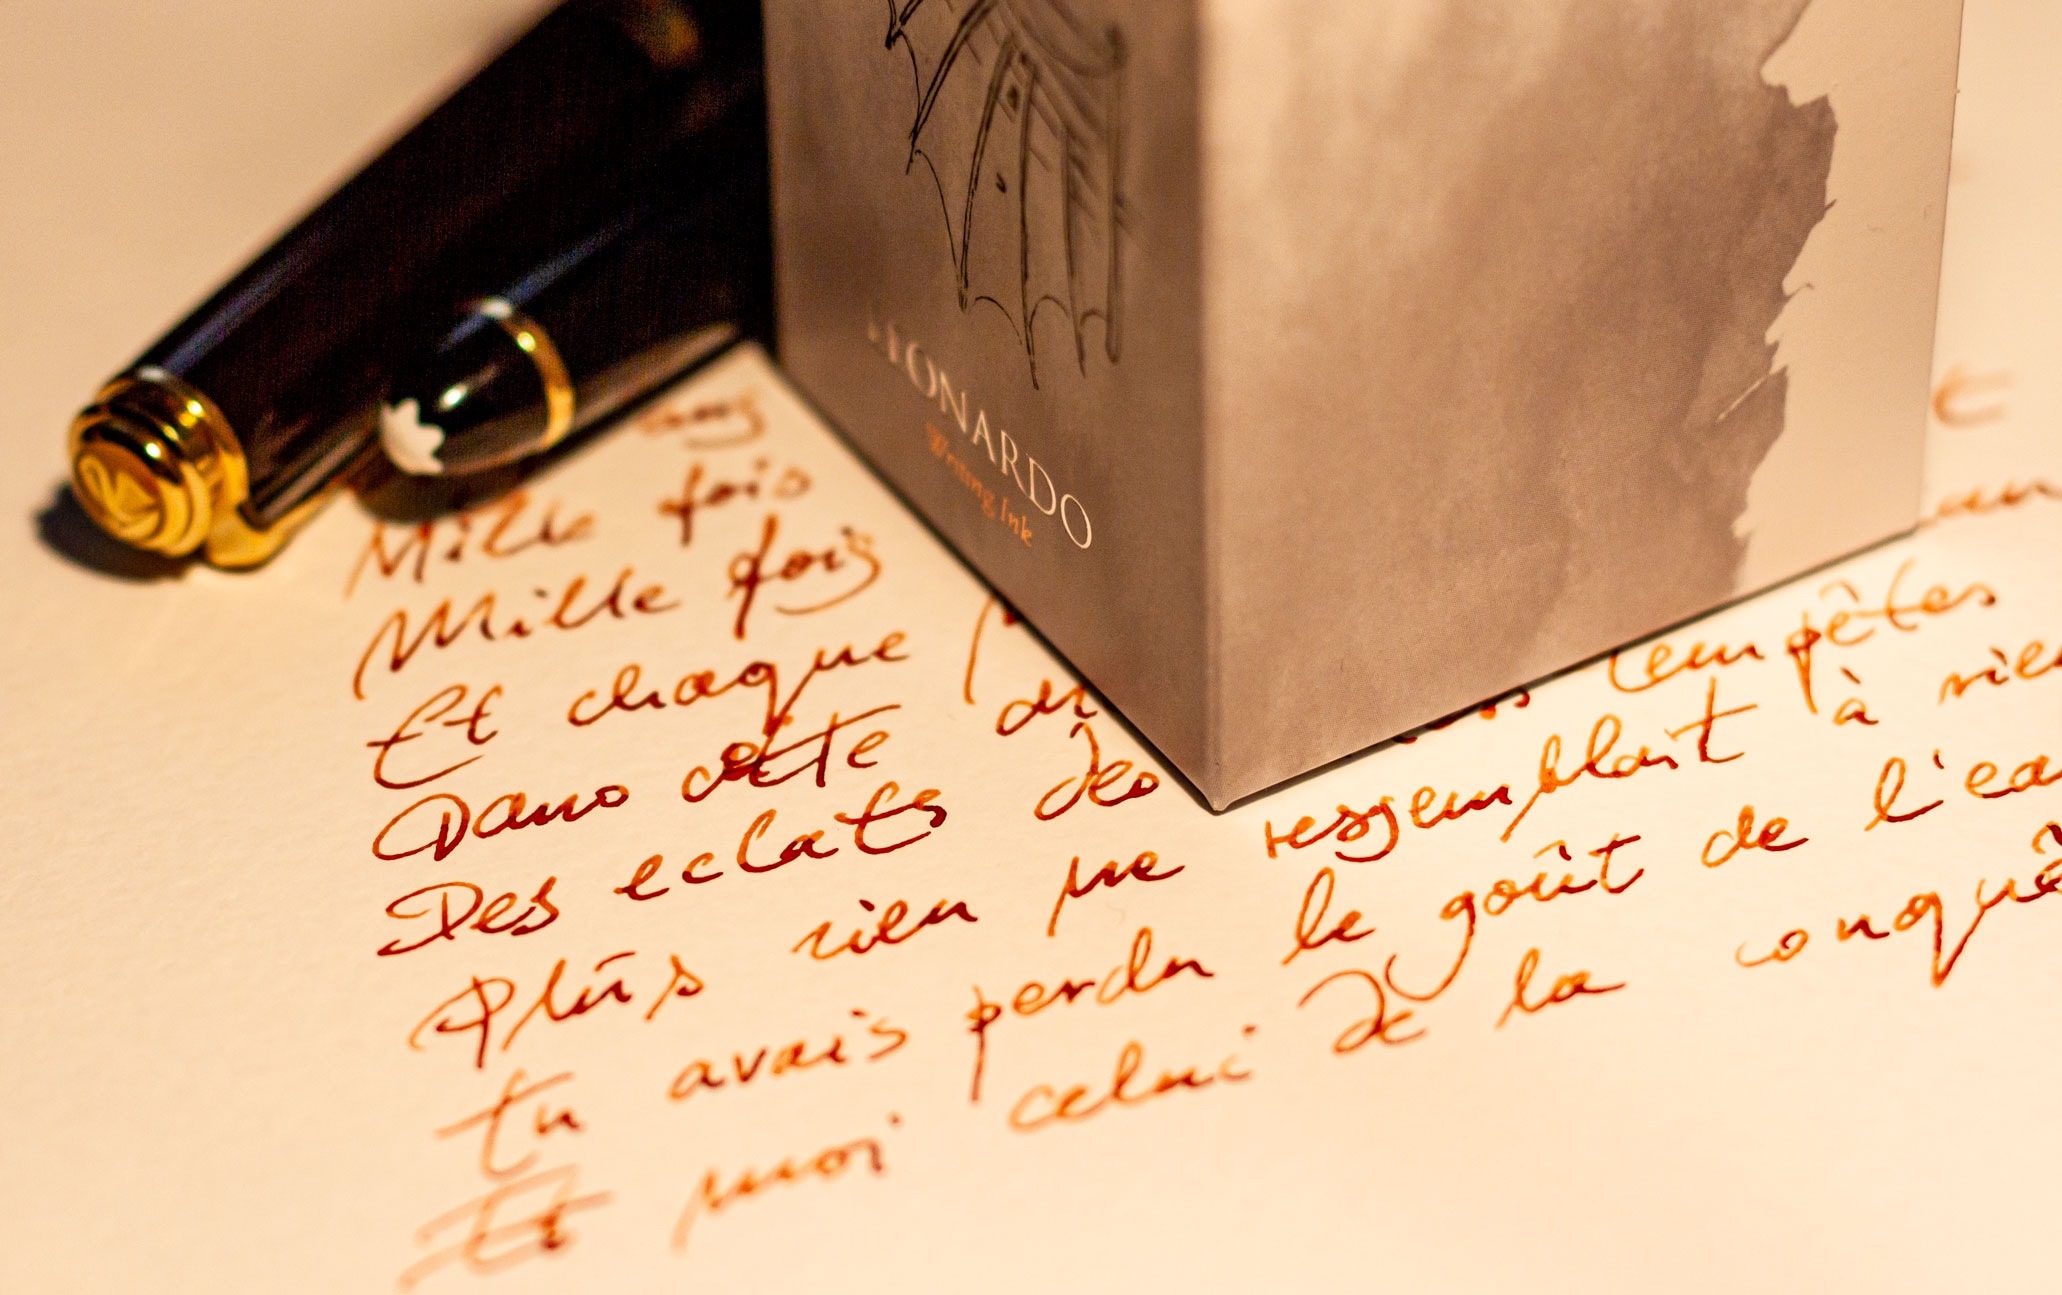 LEONARDO
Writing Ink
Mille fois
Mille fois
Et chaque
Dans cette
Des eclats des tempêtes
Plus rien ne ressemblait à
tu avais perdu le goût de
Et moi celui de la